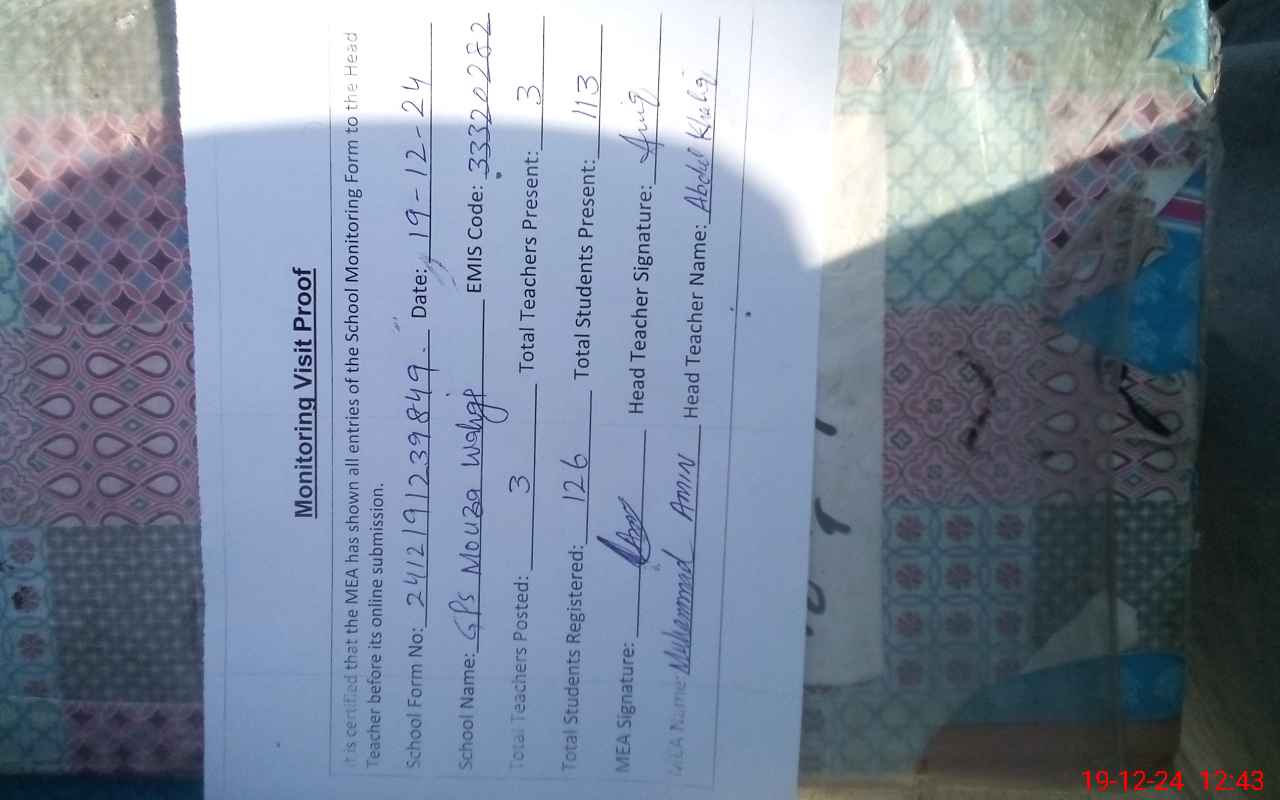 Monitoring Visit Proof
It is certified that the MEA has shown all entries of the School Monitoring Form to the Head
Teacher before its online submission.
School Form No: 2412191239849. Date: 19-12-24
School Name: GPS Mouza EMIS Code: 33320282
Total Teachers Posted: 3 Total Teachers Present: 3
Total Students Registered: 126 Total Students Present: 113
MEA Signature: Head Teacher Signature:
MEA Name: Muhammad Amin Head Teacher Name: Abdul Khaliq
19-12-24 12:43